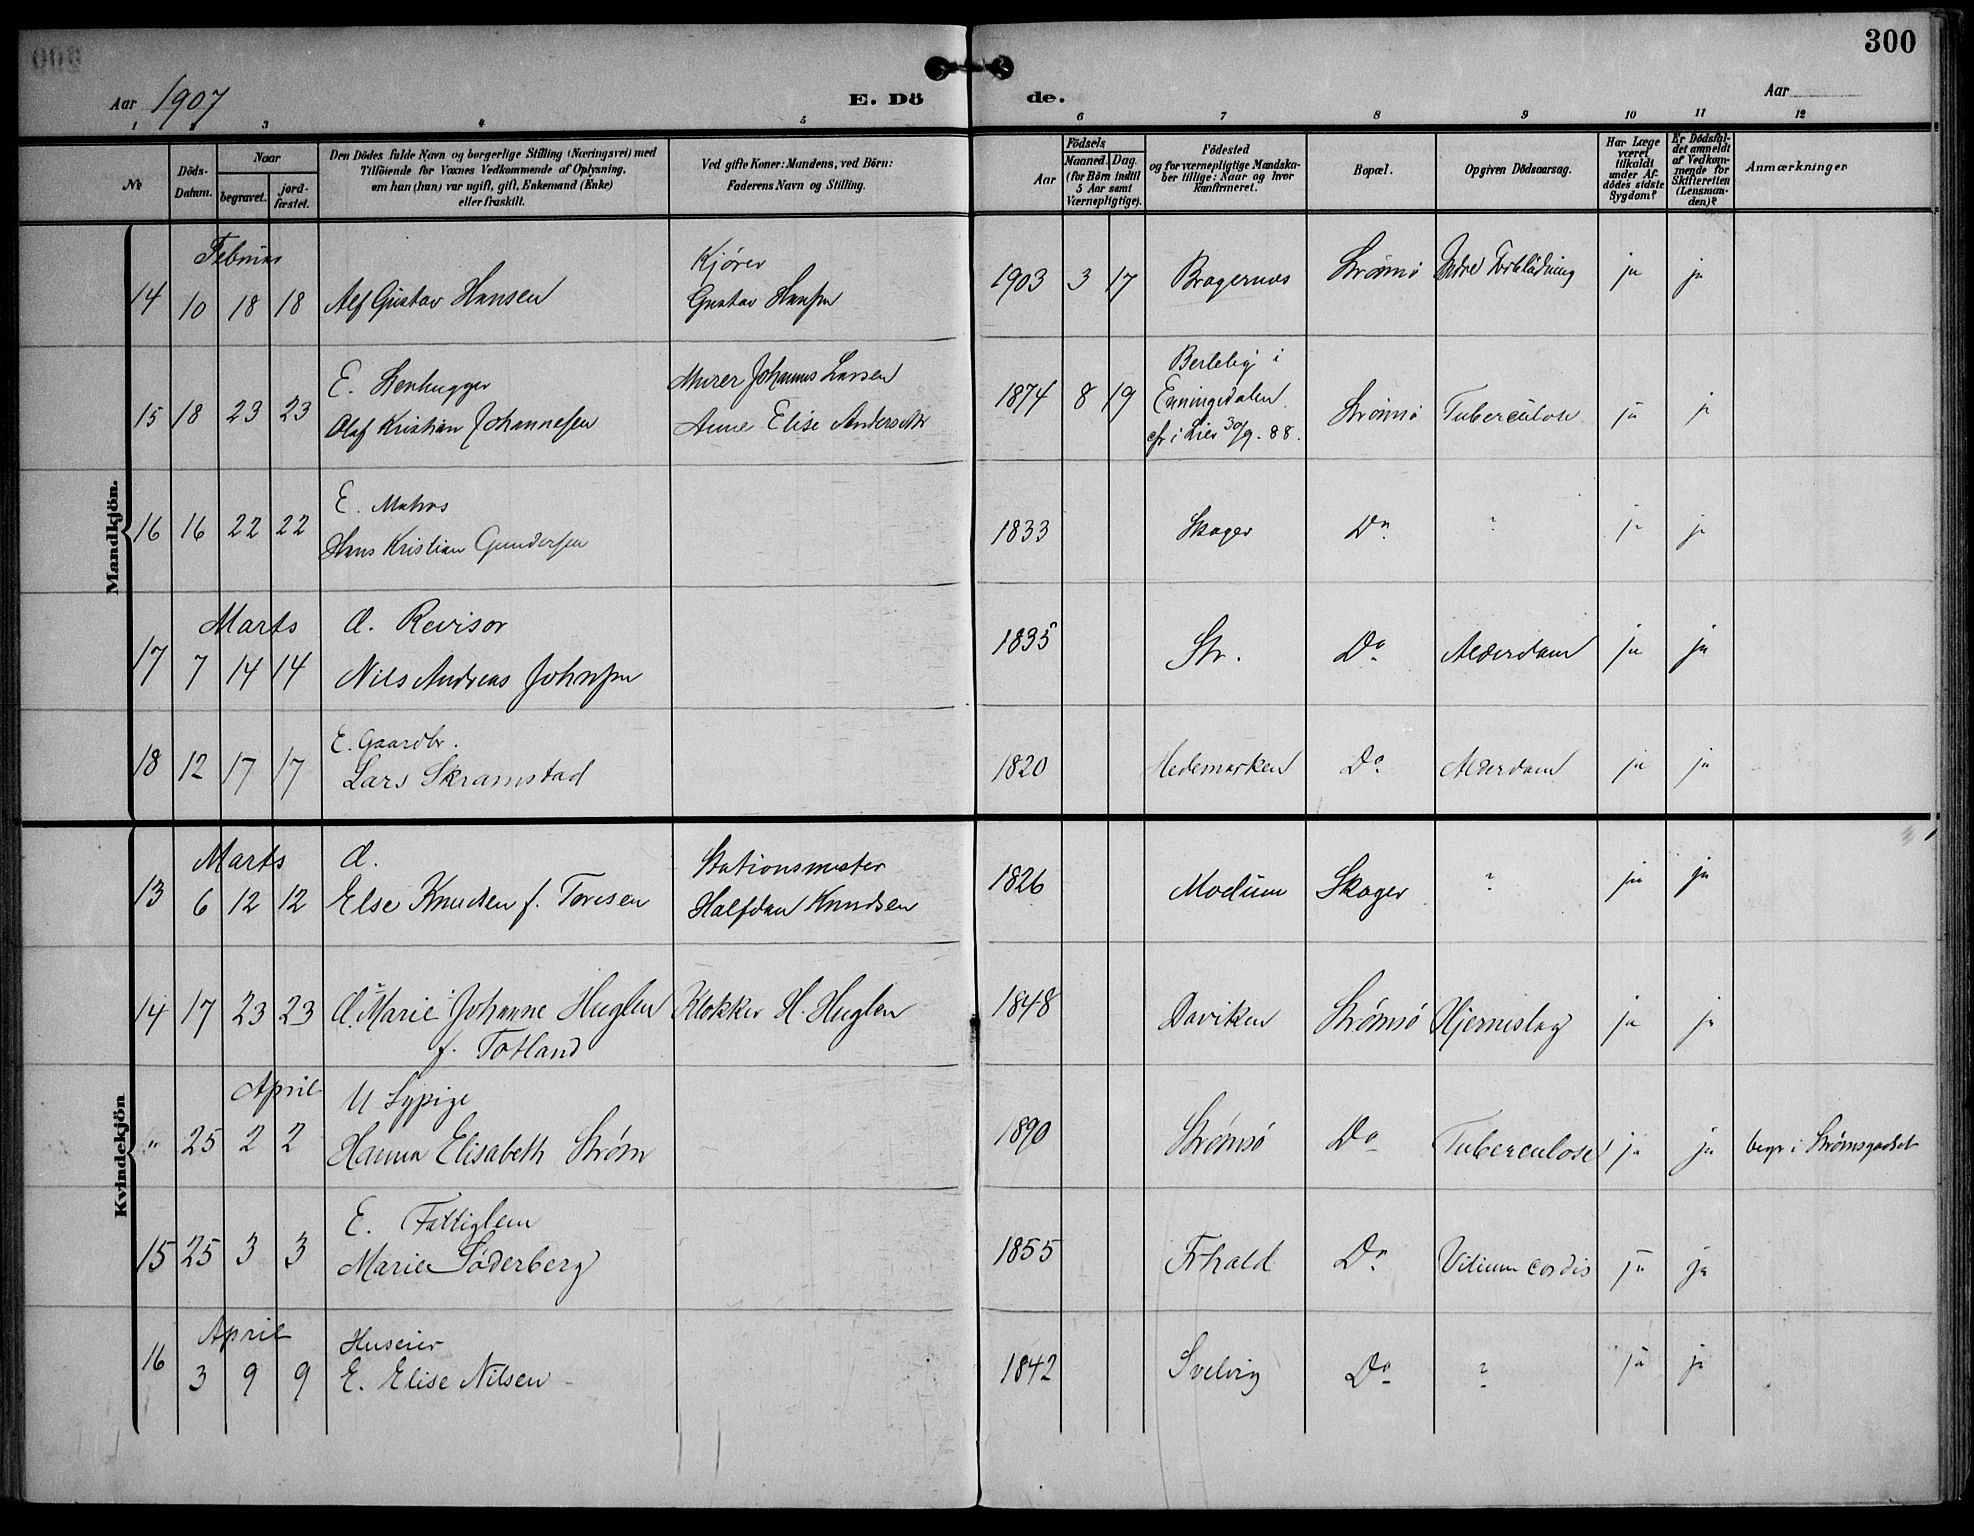 300
Aar 1907
E. Döde.
Aar
1 2 3 4 5 6 7 8 9 10 11 12
№
Döds-Datum.
Naar
begravet.
jord-fæstet.
Den Dödes fulde Navn og borgerlige Stilling (Næringsvei) med
Tilföiende for Voxnes Vedkommende af Oplysning,
om han (hun) var ugift, gift, Enkemand (Enke)
eller fraskilt.
Ved gifte Koner: Mandens, ved Börn:
Faderens Navn og Stilling.
Födsels
Aar
Maaned. Dag.
(for Börn indtil
5 Aar samt
Værnepligtige).
Födested
og for værnepligtige Mandska-
ber tillige: Naar og hvor
Konfirmeret.
Bopæl.
Opgiven Dödsaarsag.
Har Læge
været
tilkaldt
under Af-
dödes sidste
Sygdom?
Er Dödsfal-
det anmeldt
af Vedkom-
mende for
Skifteretten
(Lensman-
den)?
Anmærkninger
Mandkjön.
Februar
14 10 18 18 Alf Gustav Hansen
Kjører
Gustav Hansen
1903 3 17 Bragernæs Strømsø Indre Forblødning ja ja
E. Stenhugger
15 18 23 23 Olaf Kristian Johannesen
Murer Johannes Larsen
Anne Elise Andersdtr
1874 8 19
i
Enningdalen
cfr i Lier 30/9. 88.
Strømsø Tuberculose ja ja
E. Matros
16 16 22 22 Hans Kristian Gundersen
1833 Skoger Do ? ja ja
Marts
G. Revisor
17 7 14 14 Nils Andreas Johnsen
1835 Str. Do Alderdom ja ja
E. Gaardbr.
18 12 17 17 Lars Skramstad
1820 Hedemarken Do Alderdom ja ja
Kvindekjön
Marts
G.
13 6 12 12 Else Knudsen f. Toresen
Stationsmester
Halfdan Knudsen
1826 Modum Skoger ? ja ja
14 17 23 23 G. Marie Johanne Huglen
f. Totland
Klokker H. Huglen
1848 Daviken Strømsø Hjerneslag ja ja
April
U Sypige
" 25 2 2 Hanna Elisabeth Strøm
1890 Strømsø Do Tuberculose ja ja begr i Strømsgodset
E. Fattiglem
15 25 3 3 Marie Söderberg
1855 Frhald Do Vitium cordis ja ja
April
Huseier
16 3 9 9 E. Elise Nilsen
1842 Svelvig Do ? ja ja